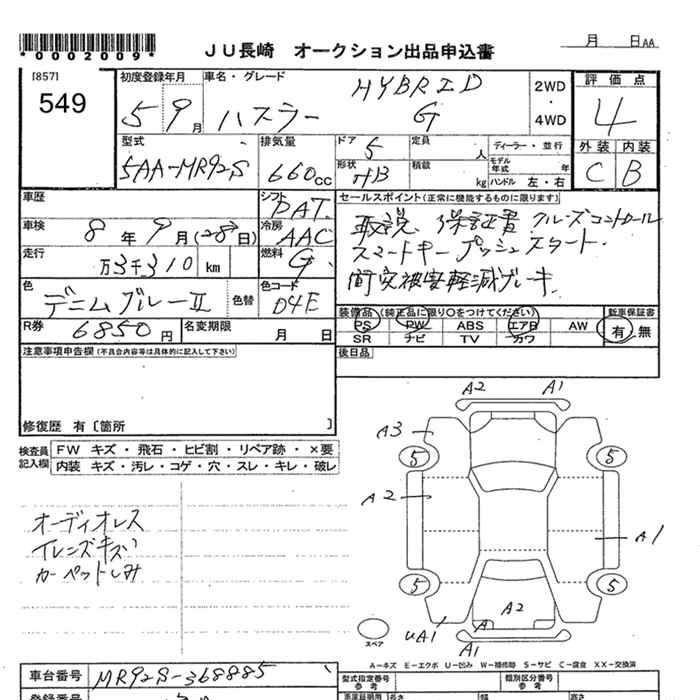 *0002009*
JU長崎 オークション出品申込書
月 日AA
[857]
549
初度登録年月
5 9月
車名・グレード
HYBRID
ハスラー G
2WD
・
4WD
評価点
4
外装 内装
C B
型式
5AA-MR92S
排気量
660cc
ドア 5
形状 HB
定員 人
積載 kg
ディーラー・並行
モデル年式 年
ハンドル 左・右
車歴
車検 8年9月(28日)
走行 万3千310 km
シフト PAT
冷房 AAC
燃料 G
色 デニムブルーⅡ
色替
色コード D4E
R券 6850円
名変期限 月 日
セールスポイント(正常に機能するものに限ります)
取説 保証書 クルーズコントロール
スマートキー プッシュスタート.
衝突被害軽減ブレーキ.
装備品(純正品に限り○をつけてください)
PS PW ABS エアB AW
SR ナビ TV カワ
新車保証書
有・無
後日品
注意事項申告欄(不具合内容等は具体的に記入して下さい)
修復歴 有〔箇所 〕
検査員記入欄
FW キズ・飛石・ヒビ割・リペア跡・×要
内装 キズ・汚レ・コゲ・穴・スレ・キレ・破レ
オーディオレス
カーペットしみ
A2 A1
A3
5 5
A2
A1
5 5
A2
A
UA1
A1
スペア
A−キズ E−エクボ U−凹み W−補修跡 S−サビ C−腐食 XX−交換済
車台番号 MR92S-368885
型式指定番号
参考
類別区分番号
参考
長さ 幅 高さ